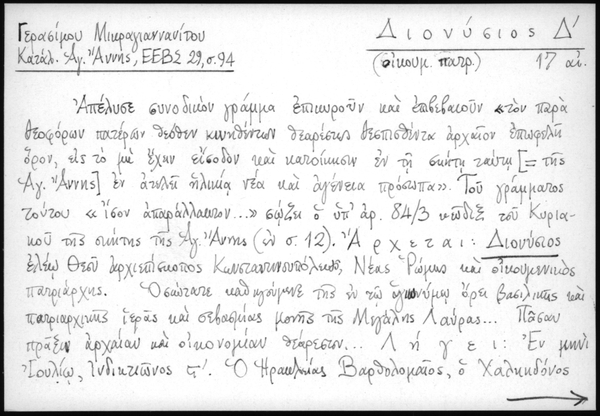 Γερασίμου Μικραγιαννανίτου
Κατάλ. Ἁγ. Ἄννης, ΕΕΒΣ 29, σ. 94
Διονύσιος Δ΄
(οἰκουμ. πατρ.) 17 αἰ.
Ἀπέλυσε συνοδικὸν γράμμα ἐπικυροῦν καὶ ἐπιβεβαιοῦν «τὸν παρὰ
θεοφόρων πατέρων θεόθεν κινηθέντων θεαρέστως θεσπισθέντα ἀρχαῖον ἐπωφελῆ
ὅρον, εἰς τὸ μὴ ἔχειν εἴσοδον καὶ κατοίκησιν ἐν τῇ σκήτῃ ταύτῃ [= τῆς
Ἁγ. Ἄννης] ἐν ἀτελεῖ ἡλικίᾳ νέα καὶ ἀγένεια πρόσωπα». Τοῦ γράμματος
τούτου «ἴσον ἀπαράλλακτον...» σῴζει ὁ ὑπ' ἀρ. 84/3 κῶδιξ τοῦ Κυρια-
κοῦ τῆς σκήτης τῆς Ἁγ. Ἄννης (ἐν σ. 12). Ἄρχεται: Διονύσιος
ἐλέῳ Θεοῦ ἀρχιεπίσκοπος Κωνσταντινουπόλεως, Νέας Ῥώμης καὶ οἰκουμενικὸς
πατριάρχης. Ὁσιώτατε καθηγούμενε τῆς ἐν τῷ ἁγιωνύμῳ ὄρει βασιλικῆς καὶ
πατριαρχικῆς ἱερᾶς καὶ σεβασμίας μονῆς τῆς Μεγάλης Λαύρας... Πᾶσαν
πρᾶξιν ἀρχαίαν καὶ οἰκονομίαν θεάρεστον... Λήγει: Ἐν μηνὶ
Ἰουλίῳ, ἰνδικτιῶνος Ϛ΄. Ὁ Ἡρακλείας Βαρθολομαῖος, ὁ Χαλκηδόνος